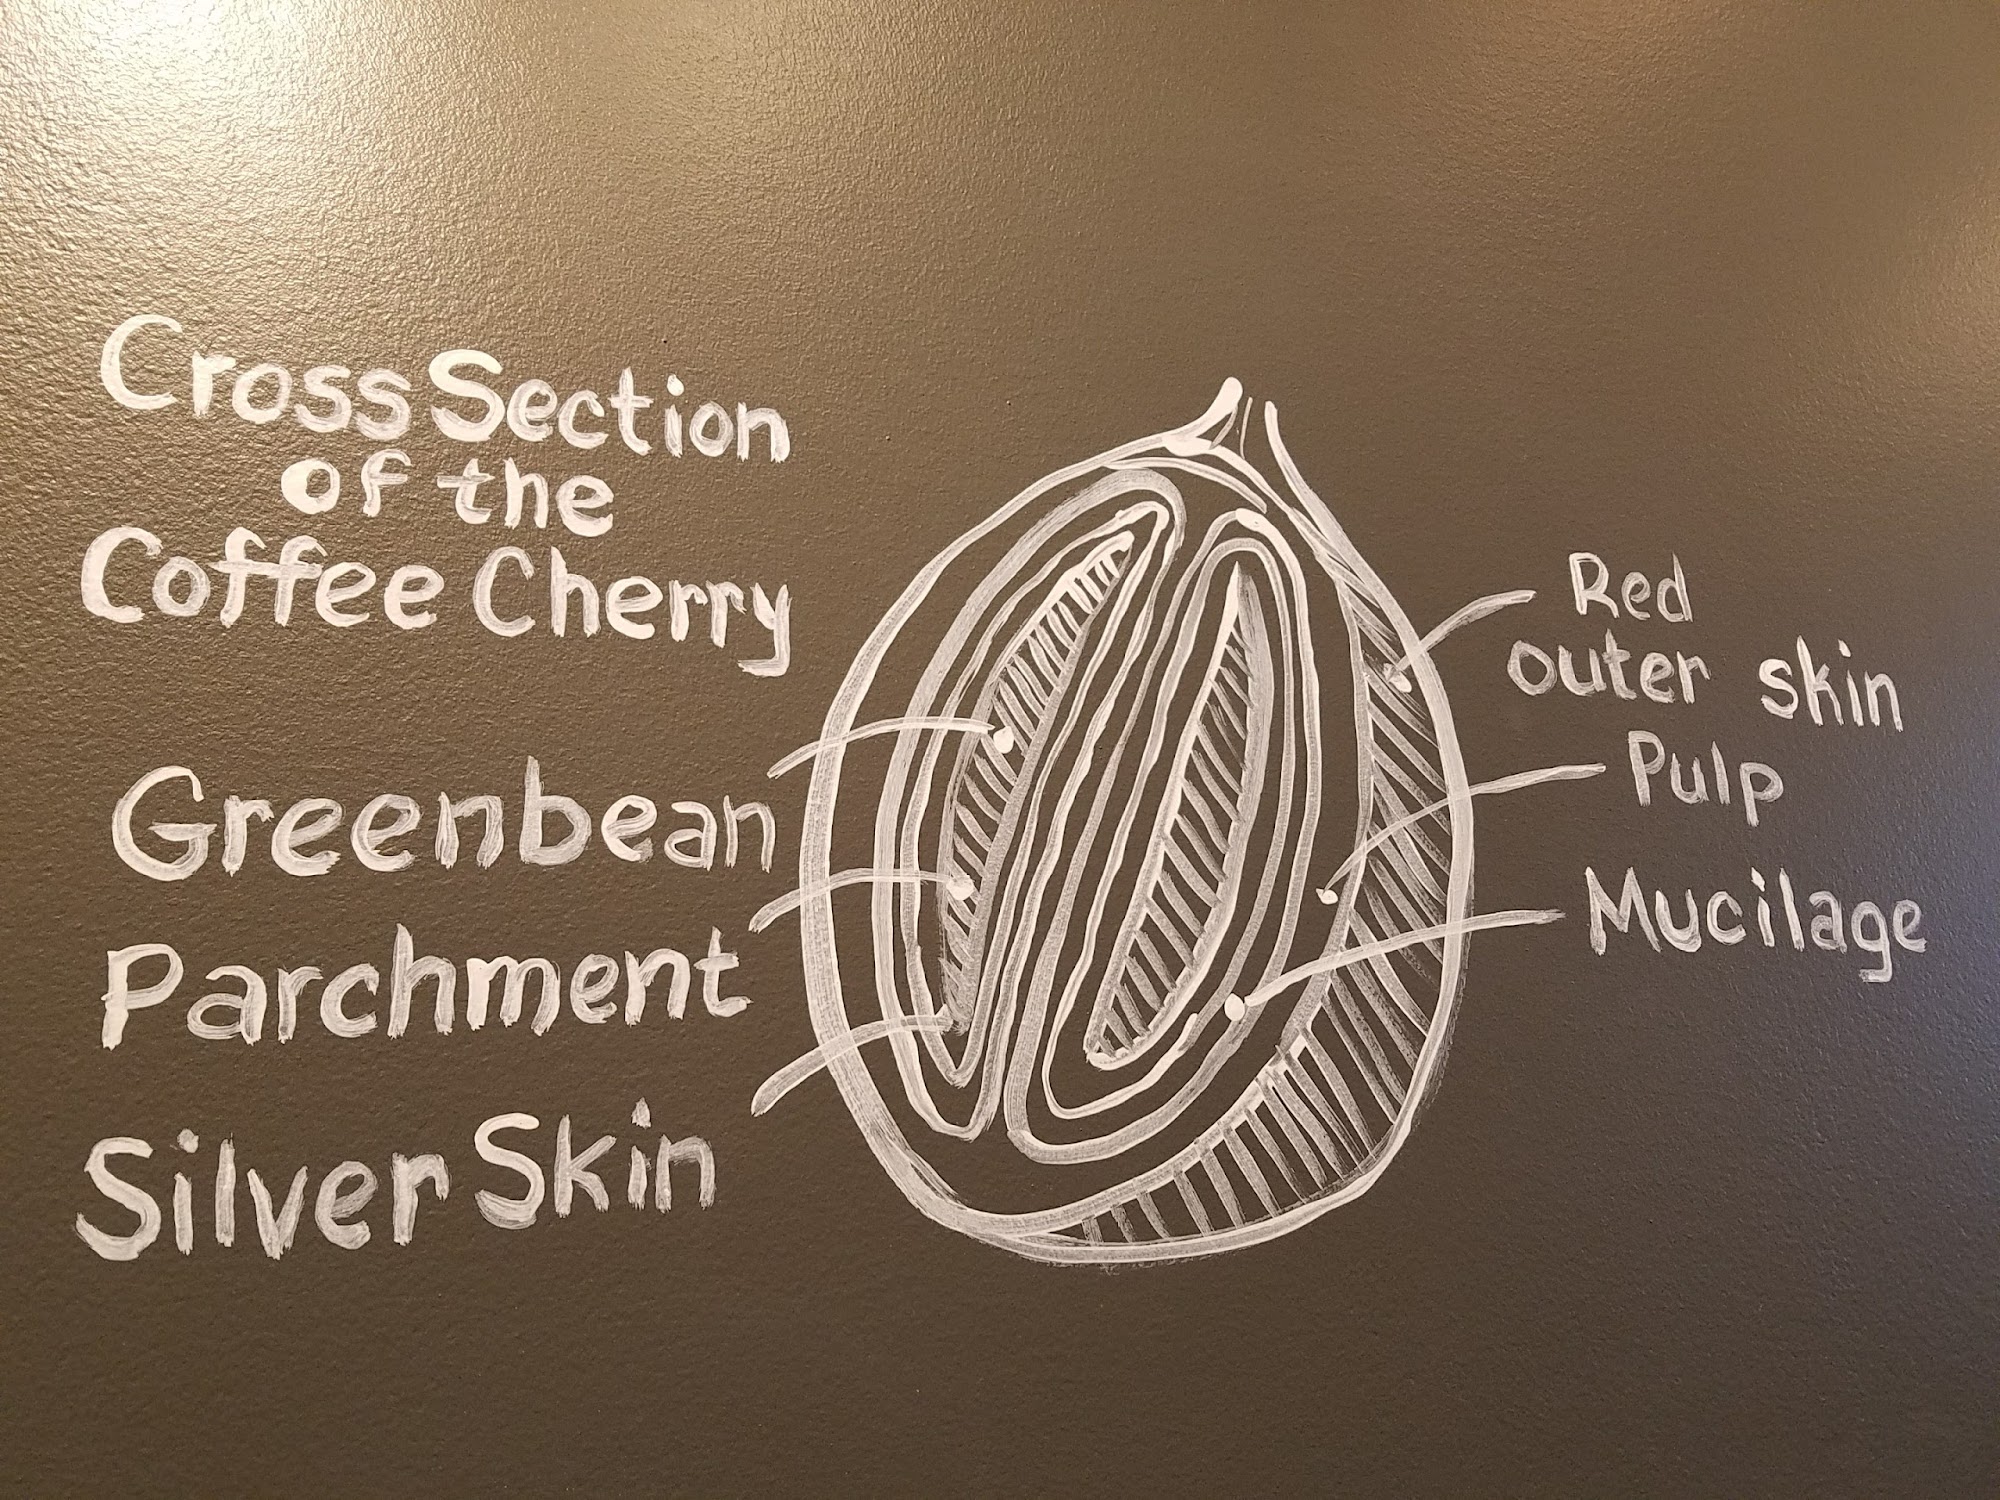 Cross Section
of the
Coffee Cherry
Greenbean
Parchment
Silver Skin
Red
outer skin
Pulp
Mucilage